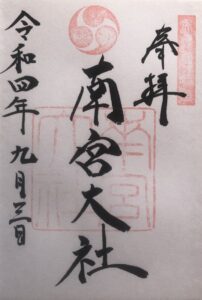 奉拝
南宮大社
令和四年九月三日